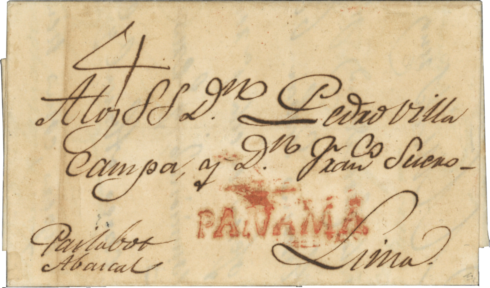 4
A los SS D.n Pedro Villa
Campa, y D.n Fran.co Suero
PANAMA
Lima.
Abascal